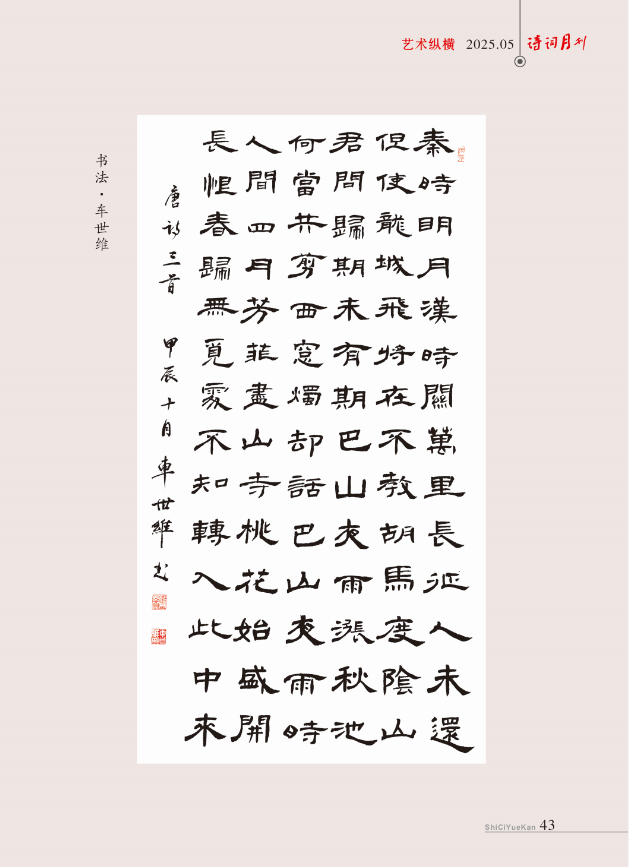 艺术纵横 2025.05 诗词月刊
书法·车世维
秦時明月漢時關萬里長征人未還
但使龍城飛將在不教胡馬度陰山
君問歸期未有期巴山夜雨漲秋池
何當共剪西窗燭却話巴山夜雨時
人間四月芳菲盡山寺桃花始盛開
長恨春歸無覓處不知轉入此中來
唐詩三首 甲辰十月 車世維書
ShiCiYueKan 43